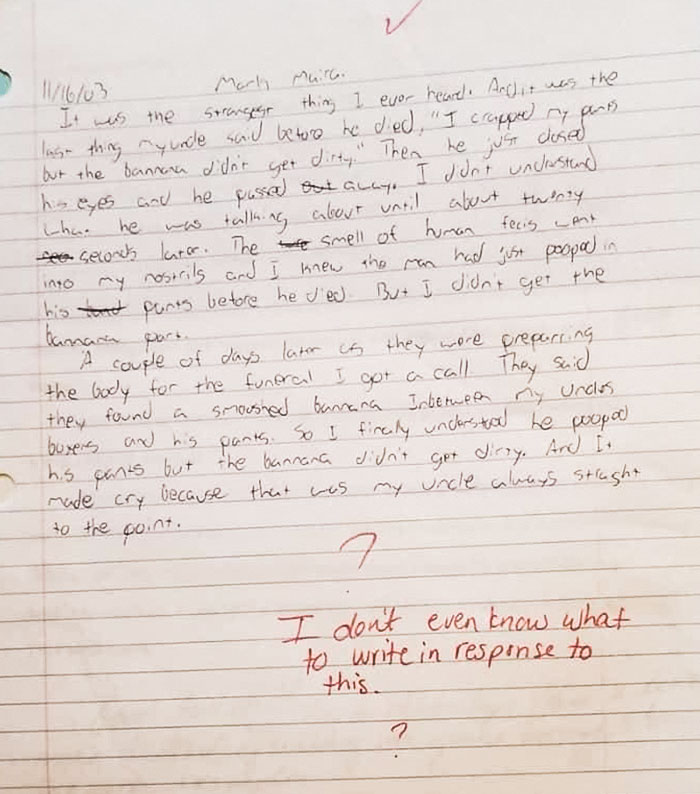 11/16/03 Mark Maira.
It was the strangest thing I ever heard. And it was the
last thing my uncle said before he died, "I crapped my pants
but the bannana didn't get dirty." Then he just closed
his eyes and he passed out away. I didn't understand
what he was talking about until about twenty
seconds later. The smell of human fecis went
into my nostrils and I knew the man had just pooped in
his pants before he died. But I didn't get the
bannana part.
A couple of days later as they were preparring
the body for the funeral I got a call They said
they found a smooshed bannana Inbetween my uncles
boxers and his pants. So I finally understood he pooped
his pants but the bannana didn't get dirty. And It
made cry because that was my uncle always straght
to the point.
?
I don't even know what
to write in response to
this.
?